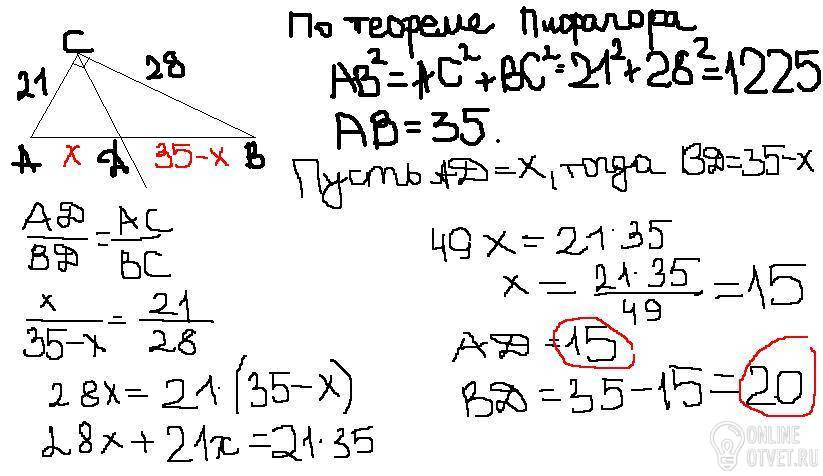 C
21
28
A x D 35-x B
По теореме Пифагора
AB²=AC²+BC²=21²+28²=1225
AB=35.
Пусть AD=x, тогда BD=35-x
AD/BD=AC/BC
x/35-x=21/28
28x=21·(35-x)
28x+21x=21·35
49x=21·35
x=21·35/49=15
AD=15
BD=35-15=20
ONLINE
OTVET.RU